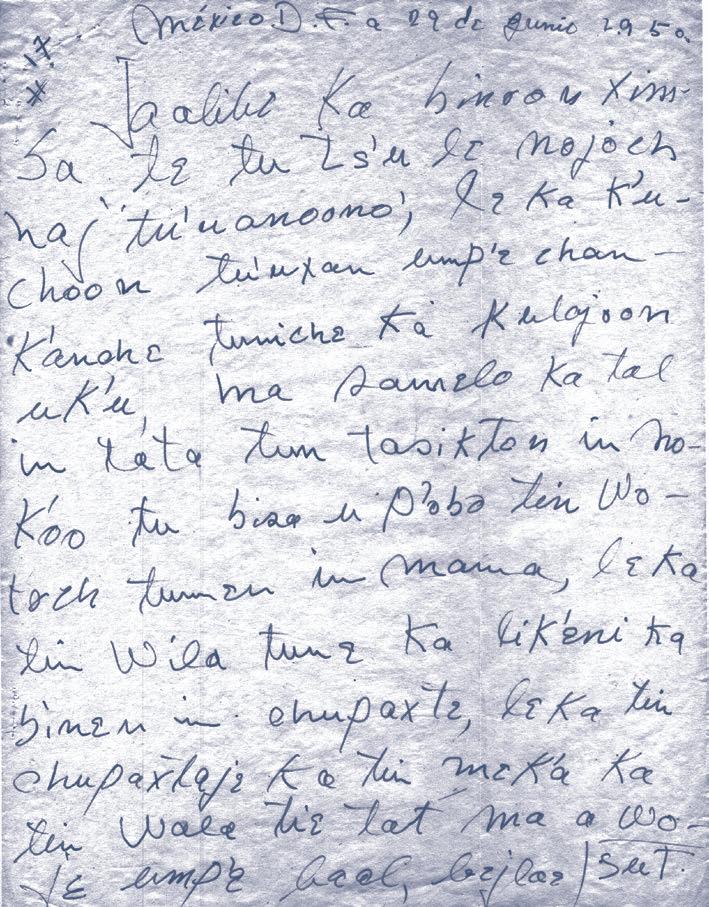 México D. F. a 29 de junio 1950.
17
Jaalibe ka binoon xim-
ba te tu ts'u le nojoch
naj tu'uanoono', le ka k'u-
choon tu'uxan ump'e chan
k'anche tuniche ka kulajoon
uk'u, ma samelo ka tal
in tata tun tasikton in no-
k'oo tu bisa u p'obo tin wo-
toch tumen in mama, le ka
tin wila tune ka lik'eni ka
binen in chupaxte, le ka tin
chupaxtaje ka tin mek'a ka
tin wala tie tat ma a wo-
je ump'e baal, bejlae / SuT.